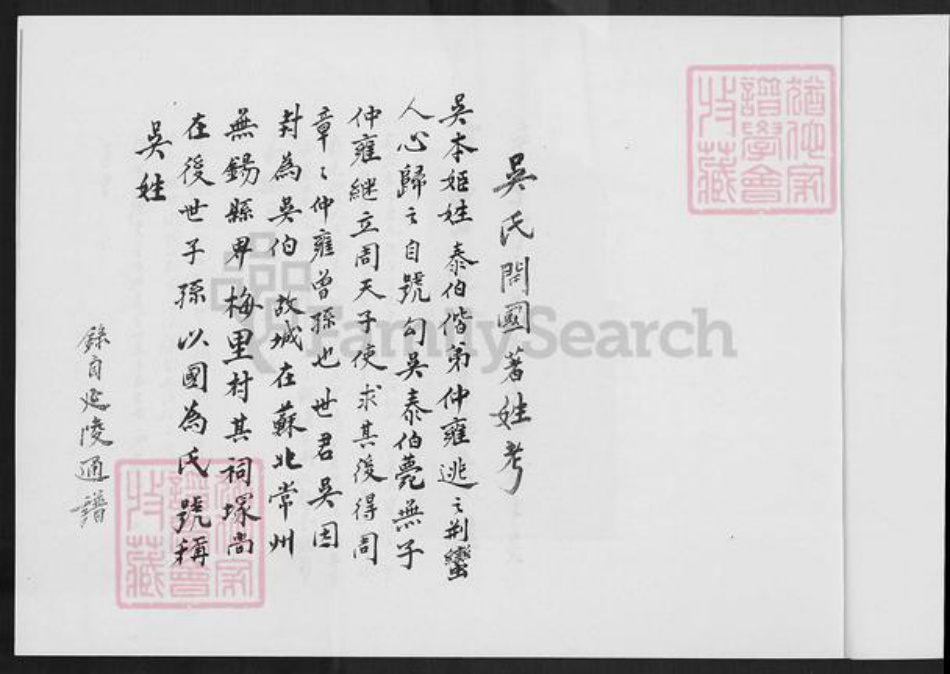 吳氏開國著姓考
吳本姬姓泰伯偕弟仲雍逃之荆蠻
人心歸之自號勾吳泰伯薨無子
仲雍繼立周天子使求其後得周
章〻仲雍曾孫也世君吳因
封為吳伯故城在蘇北常州
無錫縣界梅里村其祠塚尚
在後世子孫以國為氏號稱
吳姓
錄自延陵通譜
FamilySearch